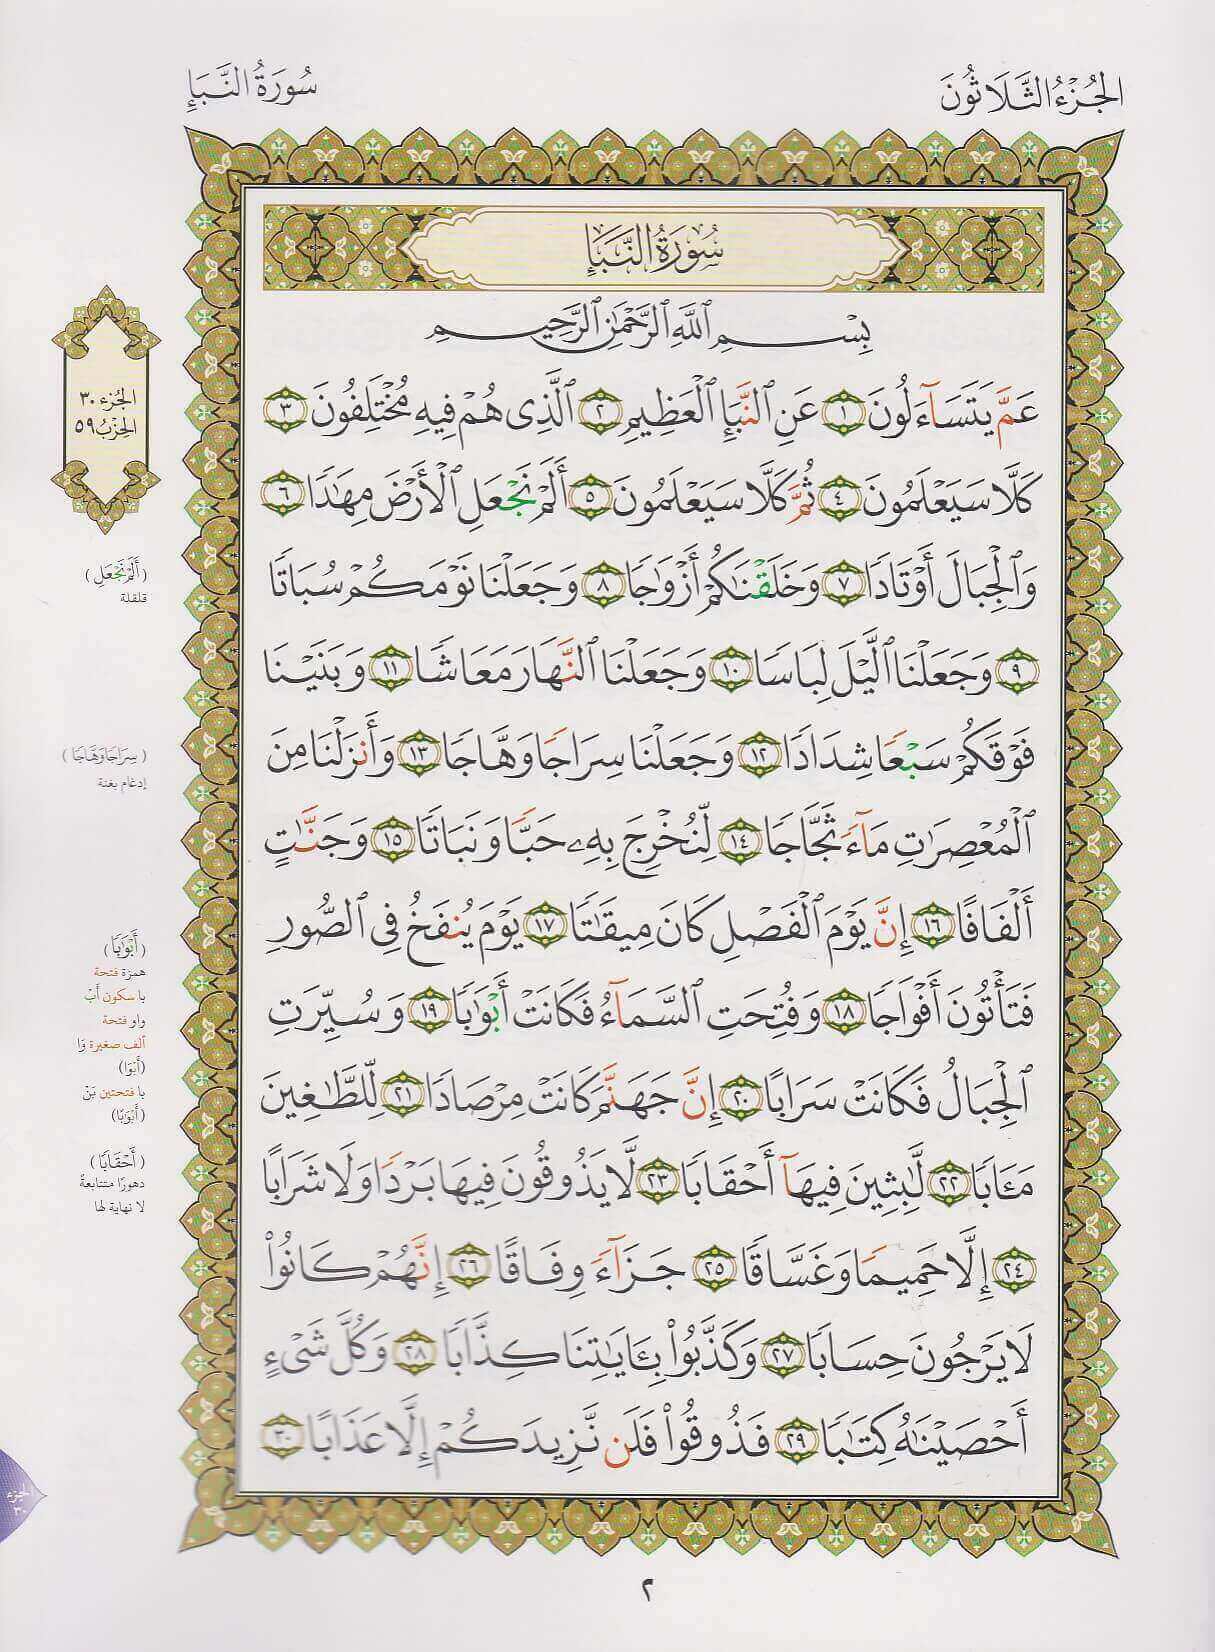 الجُزْءُ الثَّلَاثُونَ
سُورَةُ النَّبَإِ
سُورَةُ النَّبَإِ
بِسْمِ ٱللَّهِ ٱلرَّحْمَٰنِ ٱلرَّحِيمِ
عَمَّ يَتَسَآءَلُونَ ١ عَنِ ٱلنَّبَإِ ٱلْعَظِيمِ ٢ ٱلَّذِى هُمْ فِيهِ مُخْتَلِفُونَ ٣
كَلَّا سَيَعْلَمُونَ ٤ ثُمَّ كَلَّا سَيَعْلَمُونَ ٥ أَلَمْ نَجْعَلِ ٱلْأَرْضَ مِهَٰدًا ٦
وَٱلْجِبَالَ أَوْتَادًا ٧ وَخَلَقْنَٰكُمْ أَزْوَٰجًا ٨ وَجَعَلْنَا نَوْمَكُمْ سُبَاتًا
٩ وَجَعَلْنَا ٱلَّيْلَ لِبَاسًا ١٠ وَجَعَلْنَا ٱلنَّهَارَ مَعَاشًا ١١ وَبَنَيْنَا
فَوْقَكُمْ سَبْعًا شِدَادًا ١٢ وَجَعَلْنَا سِرَاجًا وَهَّاجًا ١٣ وَأَنزَلْنَا مِنَ
ٱلْمُعْصِرَٰتِ مَآءً ثَجَّاجًا ١٤ لِّنُخْرِجَ بِهِۦ حَبًّا وَنَبَاتًا ١٥ وَجَنَّٰتٍ
أَلْفَافًا ١٦ إِنَّ يَوْمَ ٱلْفَصْلِ كَانَ مِيقَٰتًا ١٧ يَوْمَ يُنفَخُ فِى ٱلصُّورِ
فَتَأْتُونَ أَفْوَاجًا ١٨ وَفُتِحَتِ ٱلسَّمَآءُ فَكَانَتْ أَبْوَٰبًا ١٩ وَسُيِّرَتِ
ٱلْجِبَالُ فَكَانَتْ سَرَابًا ٢٠ إِنَّ جَهَنَّمَ كَانَتْ مِرْصَادًا ٢١ لِّلطَّٰغِينَ
مَـَٔابًا ٢٢ لَّٰبِثِينَ فِيهَآ أَحْقَابًا ٢٣ لَّا يَذُوقُونَ فِيهَا بَرْدًا وَلَا شَرَابًا
٢٤ إِلَّا حَمِيمًا وَغَسَّاقًا ٢٥ جَزَآءً وِفَاقًا ٢٦ إِنَّهُمْ كَانُوا۟
لَا يَرْجُونَ حِسَابًا ٢٧ وَكَذَّبُوا۟ بِـَٔايَٰتِنَا كِذَّابًا ٢٨ وَكُلَّ شَىْءٍ
أَحْصَيْنَٰهُ كِتَٰبًا ٢٩ فَذُوقُوا۟ فَلَن نَّزِيدَكُمْ إِلَّا عَذَابًا ٣٠
الجُزْء ٣٠
الحِزْبُ ٥٩
(أَلَمْ نَجْعَلِ)
قلقلة
(سِرَاجًا وَهَّاجًا)
إدغام بغنة
(أَبْوَٰبًا)
همزة فتحة
با سكون أَبْ
واو فتحة
ألف صغيرة وَا
(أَبْوَا)
با فتحتين بَنْ
(أَبْوَٰبًا)
(أَحْقَابًا)
دهورًا متتابعةً
لا نهاية لها
الجزء
٣٠
٢